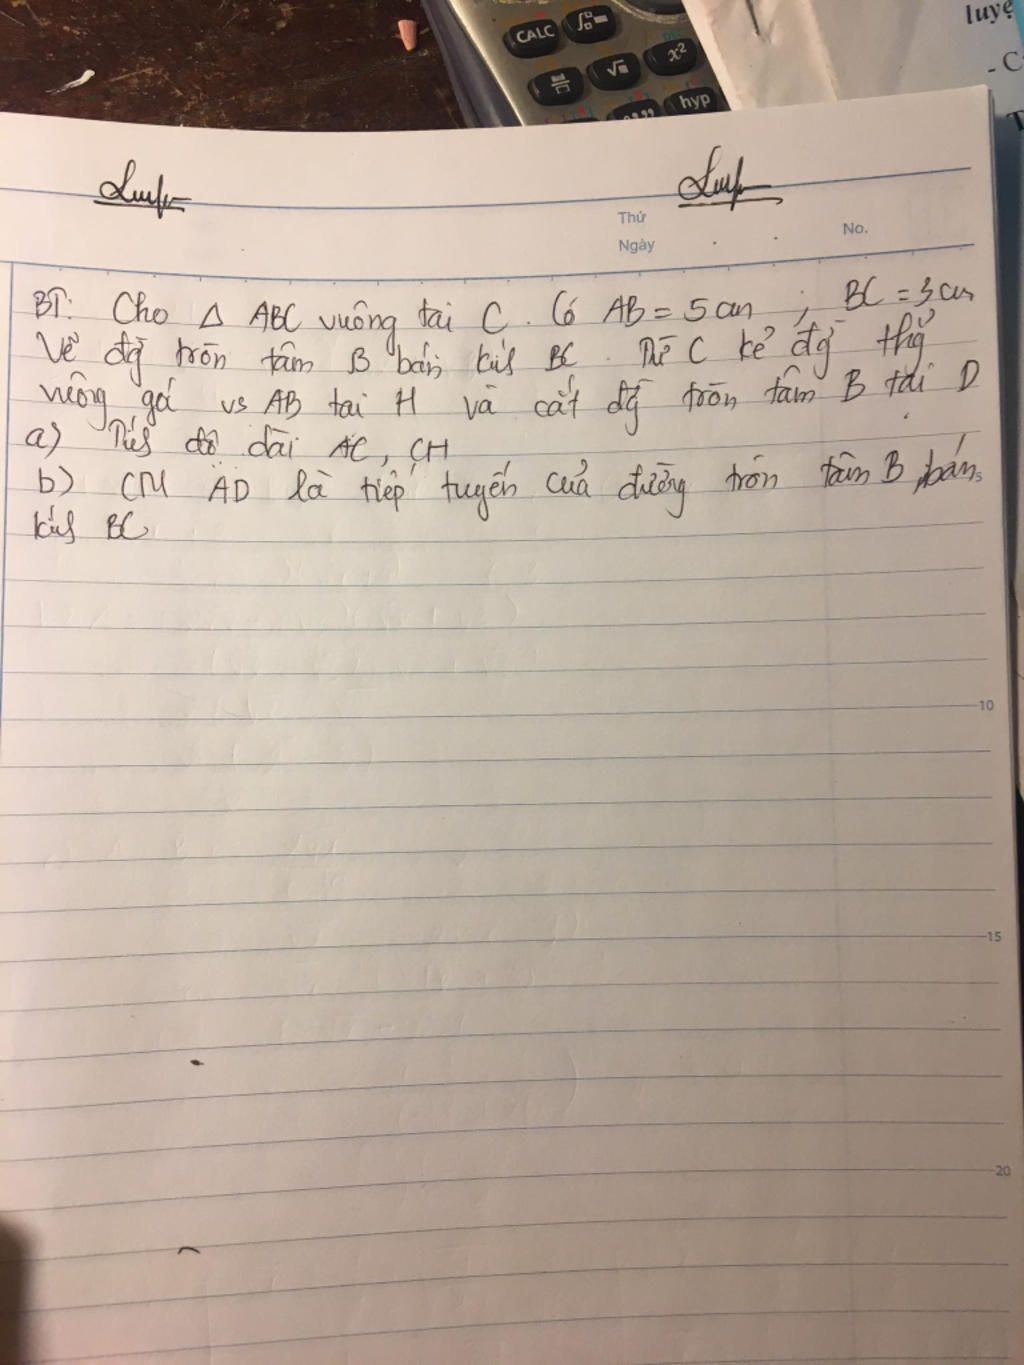 CALC
√
x²
hyp
luyệ
- C
T
Thứ
Ngày
No.
BT: Cho Δ ABC vuông tại C. Có AB = 5 cm ; BC = 3 cm
Vẽ đg tròn tâm B bán kís BC. Từ C kẻ đg thg
vuông gó vs AB tại H và cắt đg tròn tâm B tại D
a) Tís độ dài AC, CH
b) CM AD là tiếp tuyến của đường tròn tâm B, bán
kís BC
10
15
20